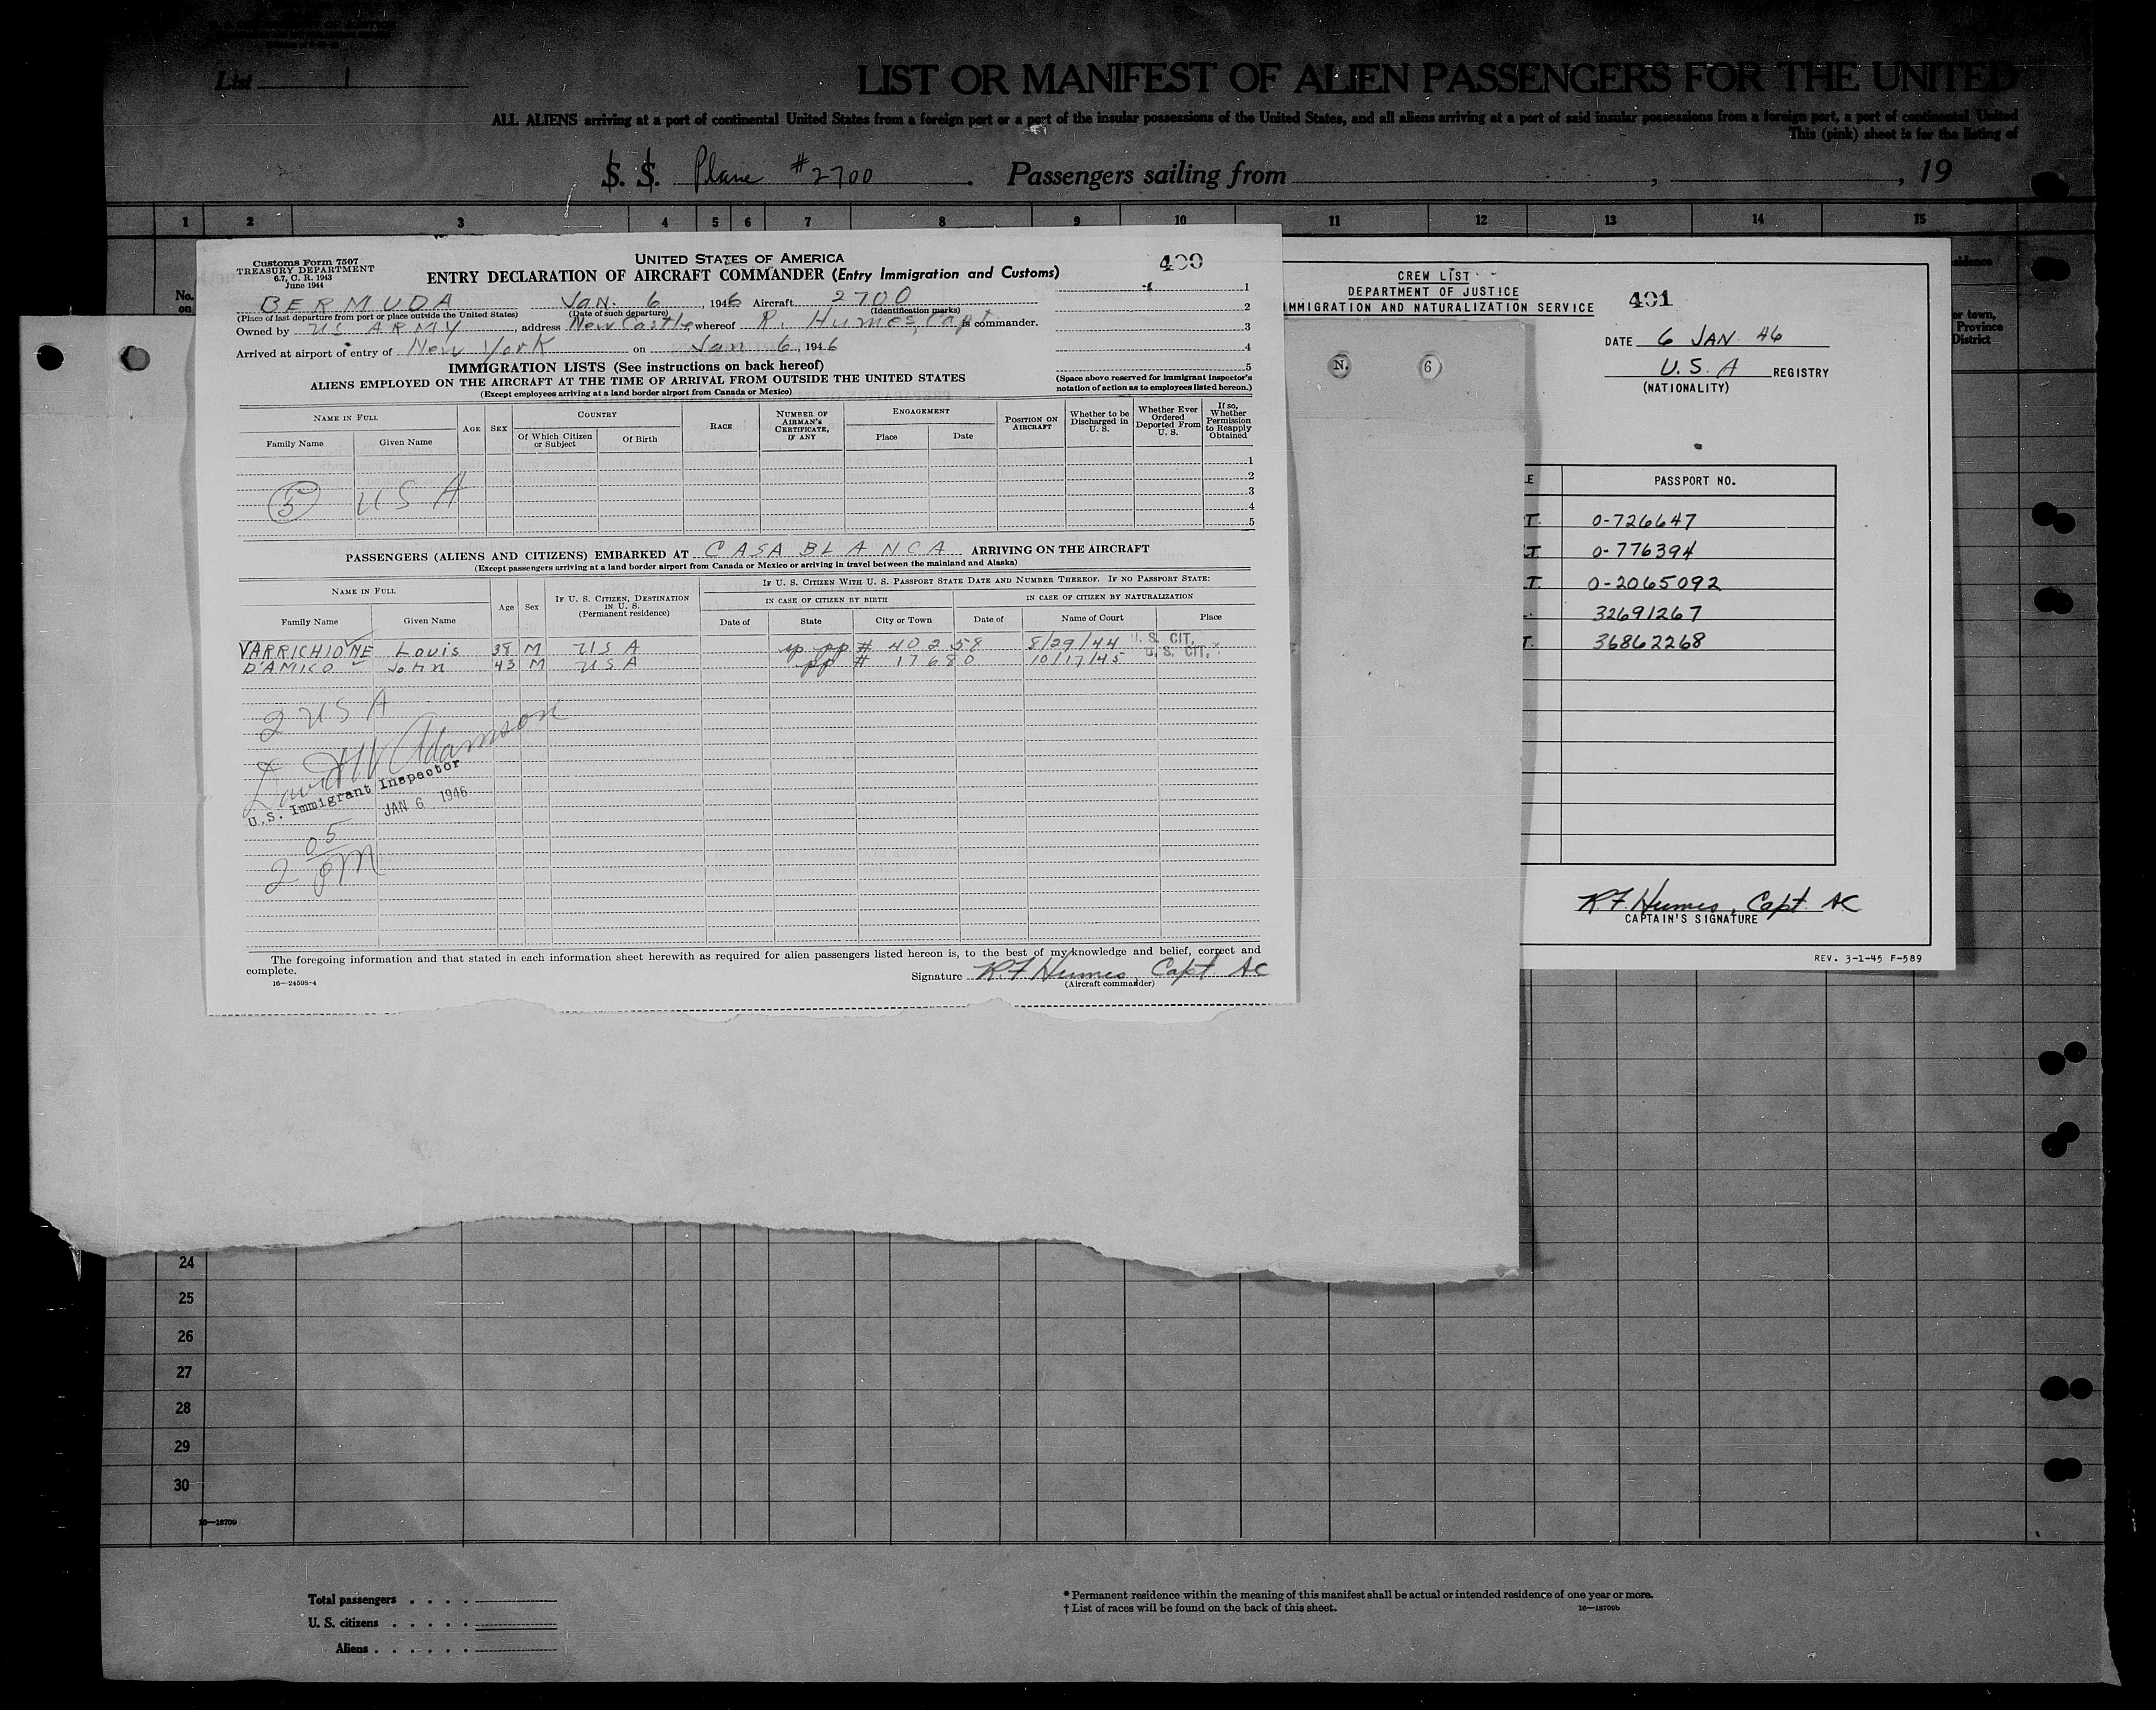 List 1
LIST OR MANIFEST OF ALIEN PASSENGERS FOR THE UNITED
ALL ALIENS arriving at a port of continental United States from a foreign port or a port of the insular possessions of the United States, and all aliens arriving at a port of said insular possessions from a foreign port, a port of continental United
This (pink) sheet is for the listing of
S. S. Plane #2700. Passengers sailing from , , 19
1 2 3 4 5 6 7 8 9 10 11 12 13 14 15
No.
on
or town,
Province
District
Customs Form 7507
TREASURY DEPARTMENT
6.7, C. R. 1943
June 1944
UNITED STATES OF AMERICA
ENTRY DECLARATION OF AIRCRAFT COMMANDER (Entry Immigration and Customs)
400
BERMUDA JAN. 6, 1946 Aircraft 2700
(Place of last departure from port or place outside the United States) (Date of such departure) (Identification marks)
Owned by US ARMY, address New Castle, whereof R. Humes, Capt. is commander.
Arrived at airport of entry of New York on Jan 6, 1946
1
2
3
4
5
(Space above reserved for immigrant inspector's
notation of action as to employees listed hereon.)
IMMIGRATION LISTS (See instructions on back hereof)
ALIENS EMPLOYED ON THE AIRCRAFT AT THE TIME OF ARRIVAL FROM OUTSIDE THE UNITED STATES
(Except employees arriving at a land border airport from Canada or Mexico)
NAME IN FULL
Family Name Given Name
AGE SEX
COUNTRY
Of Which Citizen or Subject Of Birth
RACE
NUMBER OF AIRMAN'S CERTIFICATE, IF ANY
ENGAGEMENT
Place Date
POSITION ON AIRCRAFT
Whether to be Discharged in U. S.
Whether Ever Ordered Deported From U. S.
If so, Whether Permission to Reapply Obtained
1
2
3
4
5
5 USA
PASSENGERS (ALIENS AND CITIZENS) EMBARKED AT CASABLANCA ARRIVING ON THE AIRCRAFT
(Except passengers arriving at a land border airport from Canada or Mexico or arriving in travel between the mainland and Alaska)
NAME IN FULL
Family Name Given Name
Age Sex
IF U. S. CITIZEN, DESTINATION IN U. S. (Permanent residence)
IF U. S. CITIZEN WITH U. S. PASSPORT STATE DATE AND NUMBER THEREOF. IF NO PASSPORT STATE:
IN CASE OF CITIZEN BY BIRTH IN CASE OF CITIZEN BY NATURALIZATION
Date of State City or Town Date of Name of Court Place
VARRICHIONE Louis 38 M USA sp pp # 40258 8/29/44 U. S. CIT.
D'AMICO John 43 M USA pp # 17680 10/17/45 U. S. CIT.
2 USA
David W Adamson
U.S. Immigrant Inspector
JAN 6 1946
2 05 PM
The foregoing information and that stated in each information sheet herewith as required for alien passengers listed hereon is, to the best of my knowledge and belief, correct and
complete.
Signature R.F Humes, Capt AC
(Aircraft commander)
16—24598-4
CREW LIST
DEPARTMENT OF JUSTICE
IMMIGRATION AND NATURALIZATION SERVICE
401
DATE 6 JAN 46
U.S.A REGISTRY
(NATIONALITY)
N. 6
PASSPORT NO.
T. 0-726647
T 0-776394
T. 0-2065092
32691267
T. 36862268
R.F. Humes, Capt. AC
CAPTAIN'S SIGNATURE
REV. 3-1-45 F-589
24
25
26
27
28
29
30
16—18709
Total passengers
U. S. citizens
Aliens
* Permanent residence within the meaning of this manifest shall be actual or intended residence of one year or more.
† List of races will be found on the back of this sheet.
16—18709b